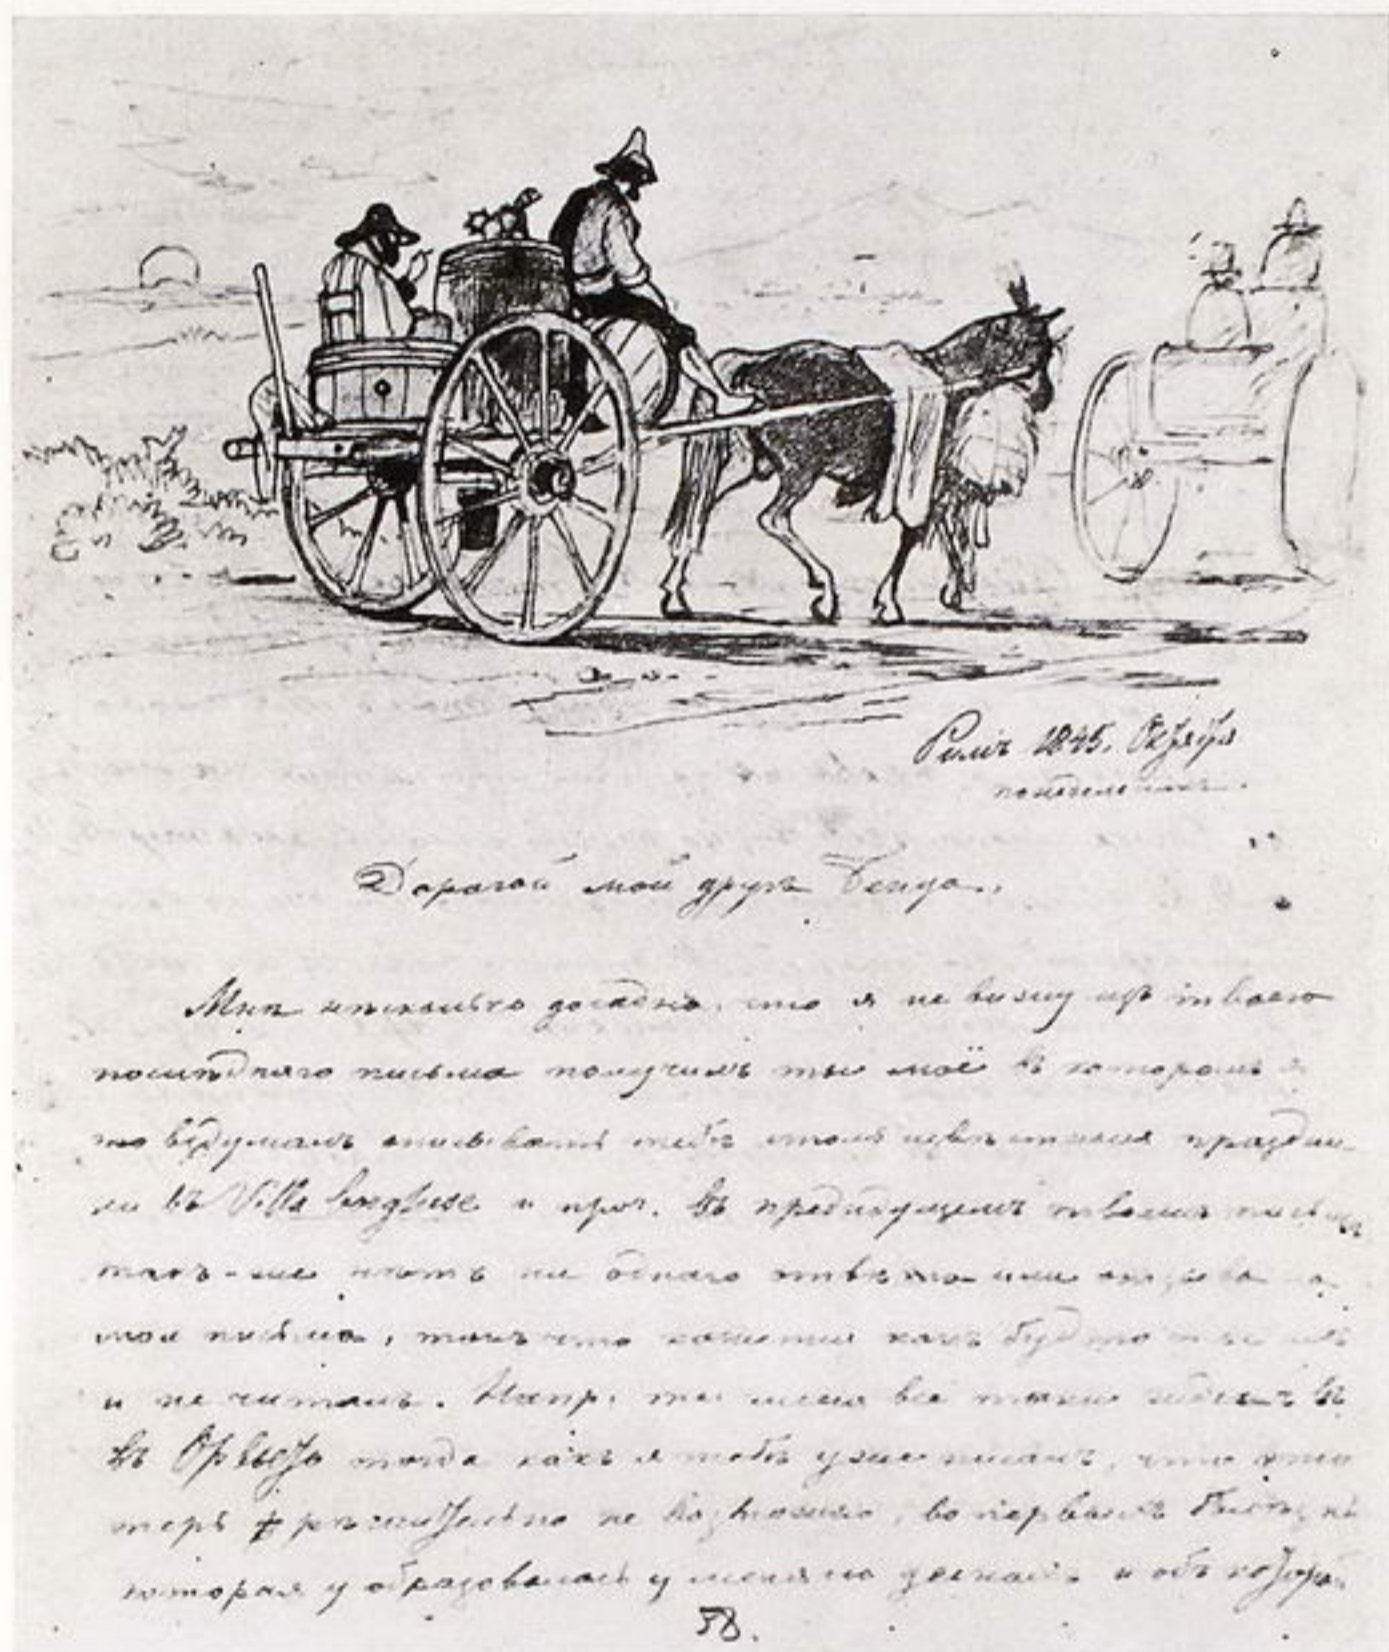 Римъ 1845. Октября
понедельникъ.
Дорогой мой другъ
Мнѣ нѣсколько досадно, что я не вижу изъ твоего
послѣдняго письма получилъ ты моё въ которомъ я
вздумалъ описывать тебѣ праздни-
ки въ Villa Borghese и проч. въ предъидущемъ твоемъ письмѣ
такъ-же нѣтъ ни одного отвѣта или на
мои письма, такъ что кажется какъ будто ты ихъ
и не читалъ. Напр. ты меня все
въ Орвьето тогда какъ я тебѣ уже писалъ, что это
теперь рѣшительно не возможно, во первыхъ
которая образовалась у меня на и объ которой
58.